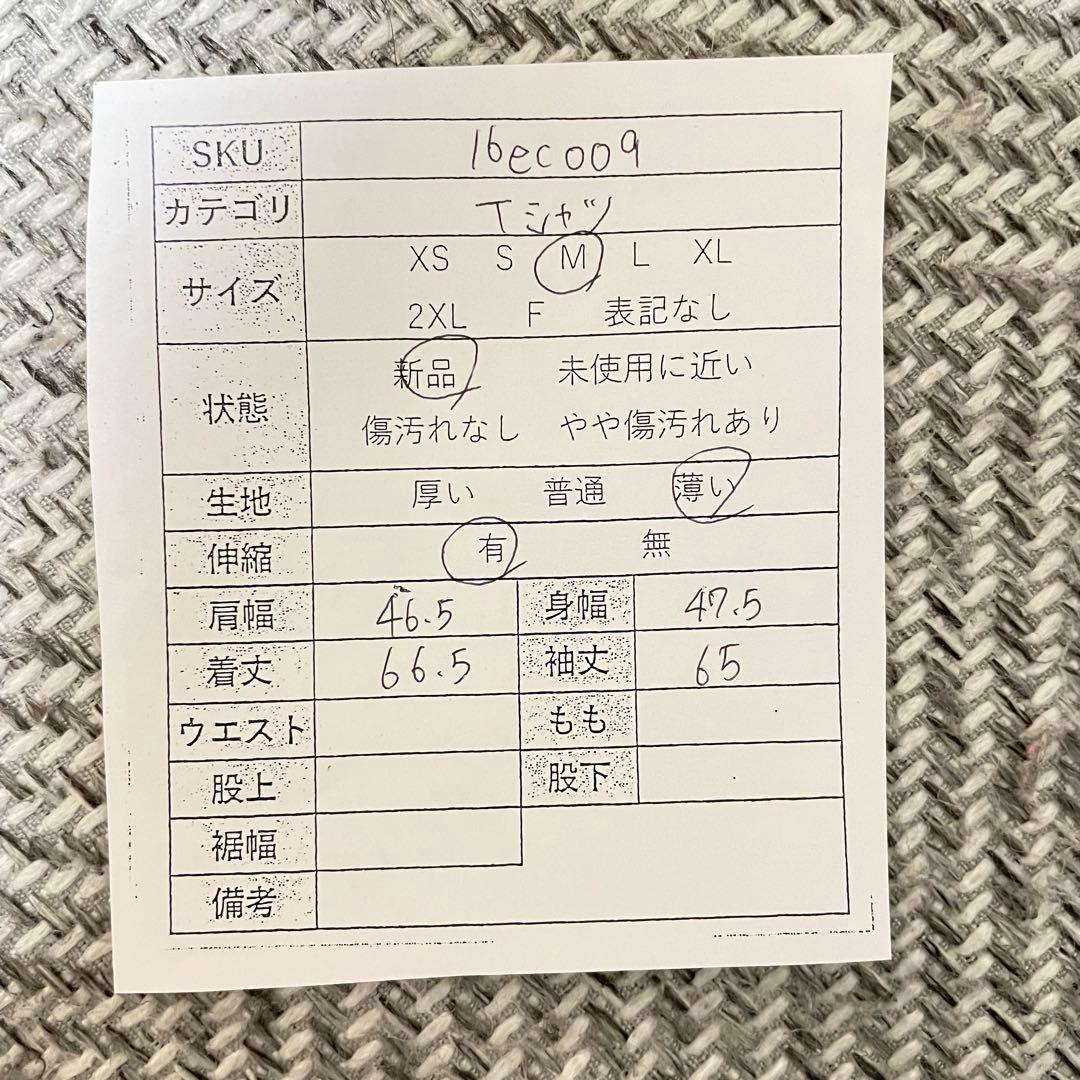 SKU 16ec009
カテゴリ Tシャツ
サイズ XS S M L XL
2XL F 表記なし
状態 新品 未使用に近い
傷汚れなし やや傷汚れあり
生地 厚い 普通 薄い
伸縮 有 無
肩幅 46.5 身幅 47.5
着丈 66.5 袖丈 65
ウエスト もも
股上 股下
裾幅
備考